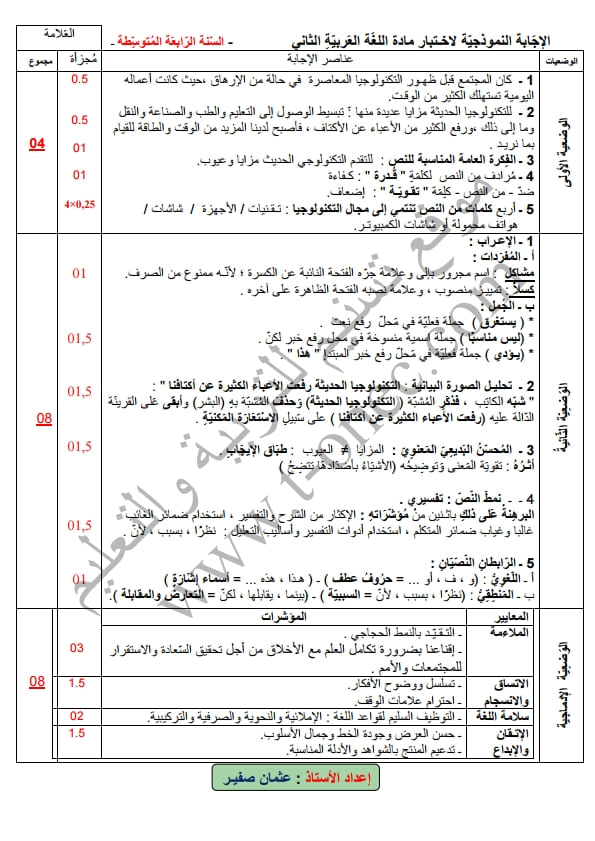 الإجَابة النموذجيّة لاختبار مادة اللغَة العَربيّةِ الثاني - السّنة الرّابعَة المُتوسِّطة - العَلامة
الوضعيات عناصر الإجابة مُجزأة مجموع
الوضعية الأولى
1 - كان المجتمع قبل ظهور التكنولوجيا المعاصرة في حالة من الإرهاق ،حيث كانت أعماله 0.5
اليومية تستهلك الكثير من الوقت.
2 - للتكنولوجيا الحديثة مزايا عديدة منها : تبسيط الوصول إلى التعليم والطب والصناعة والنقل 0.5
وما إلى ذلك ،ورفع الكثير من الأعباء عن الأكتاف ، فأصبح لدينا المزيد من الوقت والطاقة للقيام
بما نريد . 01 04
3 - الفِكرة العامة المناسبة للنص : للتقدم التكنولوجي الحديث مزايا وعيوب.
4 - مُرادف من النص لكلمَةِ " قُدرة " : كفاءة 01
ضدّ - من النص - كلِمَة " تقويّة " : إضعاف.
5 - أربع كلمات من النص تنتمي إلى مجال التكنولوجيا : تقنيات / الأجهزة / شاشات / 4×0,25
هواتف محمولة أو شاشات الكمبيوتر.
الوَضعيّة الثّانية
1 - الإعراب :
أ - المُفرَدات :
مشاكل : اسم مجرور بإلى وعلامة جرّه الفتحة النائبة عن الكسرة ؛ لأنّه ممنوع من الصرف. 01
كسلًا : تمييز منصوب ، وعلامة نصبه الفتحة الظاهرة على آخره .
ب - الجُمل :
* ( يستغرق ) جملة فعليّة في مَحلّ رفع نعت . 01,5
* (ليس مناسبًا ) جملة اسمية منسوخة في محل رفع خبر لكنّ .
* (يـؤدي ) جملة فعليّة في مَحلّ رفع خبر المبتدإ " هذا " .
2 - تحليل الصورة البيانية : التكنولوجيا الحديثة رفعت الأعباء الكثيرة عن أكتافنا " : 01,5
" شبّه الكاتب ، فذكر المُشبّه ( التكنولوجيا الحديثة) وَحذفَ المُشبّه بهِ (البشر) وأبقى عَلى القرينَة 08
الدّالة عليه (رفعت الأعباء الكثيرة عن أكتافنا ) على سَبيل الاستعَارَة المَكنيّة .
3 - المُحسّنُ البَديعيّ المَعنويّ : المزايا ≠ العيوب : طبَاق الإيجَاب . 01,5
أثرُهُ : تقوية المَعنى وَتوضِيحُه (الأشيَاءُ بأضدَادِهَا تتضِحُ )
4 - نمطُ النّصّ : تفسيري .
البرهنةُ عَلى ذلكَ باثنين منْ مُؤشراتهِ : الإكثار من الشرح والتفسير ، استخدام ضمائر الغائب
غالبا وغياب ضمائر المتكلم ، استخدام أدوات التفسير وأساليب التعليل : نظرًا ، بسبب ، لأنّ . 01,5
5 - الرّابطان النّصّيّان :
أ - اللغويّ : (و ، ف ، أو ... = حرُوفُ عطف ) - ( هذا ، هذه ... = أسماء إشَارَة ) 01
ب - المَنطقِيُّ : (نظرًا ، بسبب ، لأنّ = السببيّة ) - (بينما ، يقابلها ، لكنّ = التعارضُ والمقابلة ).
الوَضعيّة الإدماجية
المعايير المؤشرات
الملاءمة - التقيّد بالنمط الحجاجي .
- إقناعنا بضرورة تكامل العلم مع الأخلاق من أجل تحقيق السّعادة والاستقرار 03
للمجتمعات والأمم . 08
الاتساق - تسلسل ووضوح الأفكار. 1.5
والانسجام - احترام علامات الوقف.
سلامة اللغة - التوظيف السليم لقواعد اللغة : الإملائية والنحوية والصرفية والتركيبية. 02
الإتـقان - حسن العرض وجودة الخط وجمال الأسلوب. 1.5
والإبداع - تدعيم المنتج بالشواهد والأدلة المناسبة.
إعداد الأستاذ : عثمان صفير
موقع تشنيم للتربية والتعليم
www.t-onec.com